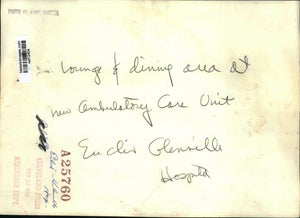 Lounge & dining area at
new Ambulatory Care Unit
Euclid Glenville
Hospital
A25760
CLEVELAND PRESS
REFERENCE DEPT.